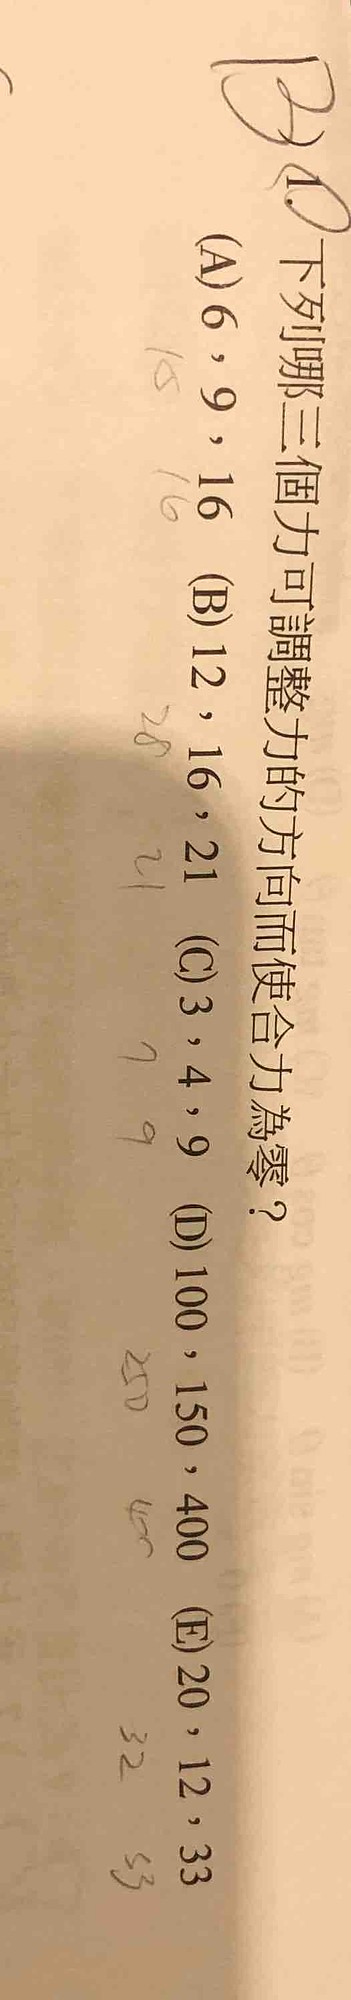 B 1. 下列哪三個力可調整力的方向而使合力為零？
(A) 6，9，16 (B) 12，16，21 (C) 3，4，9 (D) 100，150，400 (E) 20，12，33
15 16 28 21 7 9 250 400 32 33